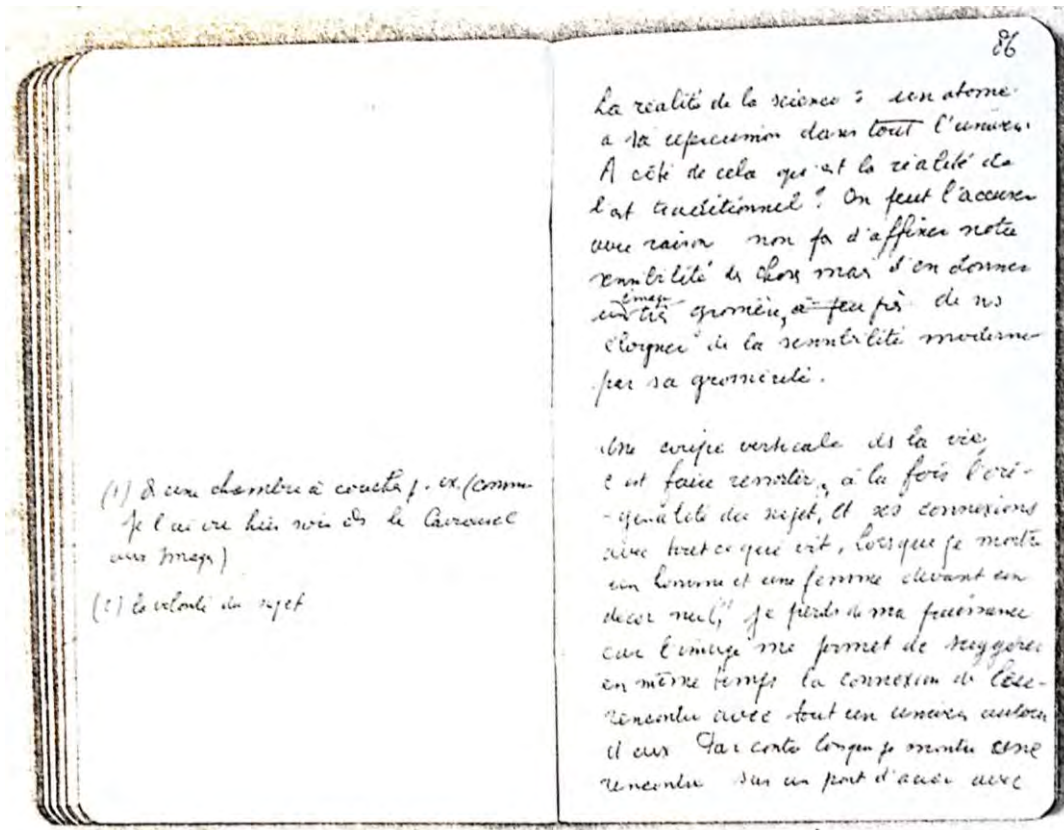 (1) d'une chambre à coucher p. ex. (comme
je l'ai vu hier soir ds le Carrousel
aux Images)
(2) la volonté du sujet
86
La réalité de la science : un atome
a sa répercussion dans tout l'univers.
A côté de cela qu'est la réalité de
l'art traditionnel ? On peut l'accuser
avec raison non pas d'affiner notre
sensibilité des choses mais d'en donner
image
très grossière, à peu près de ns
éloigner de la sensibilité moderne
par sa grossièreté.
Une coupe verticale ds la vie,
c'est faire ressortir, à la fois l'ori-
-ginalité du sujet, et ses connexions
avec tout ce qui vit, Lorsque je montre
un homme et une femme devant un
décor nul, (1) je perds de ma puissance
car l'image me permet de suggérer
en même temps la connexion de leur
rencontre avec tout un univers autour
d'eux Par contre lorsque je montre une
rencontre sur un pont d'acier avec